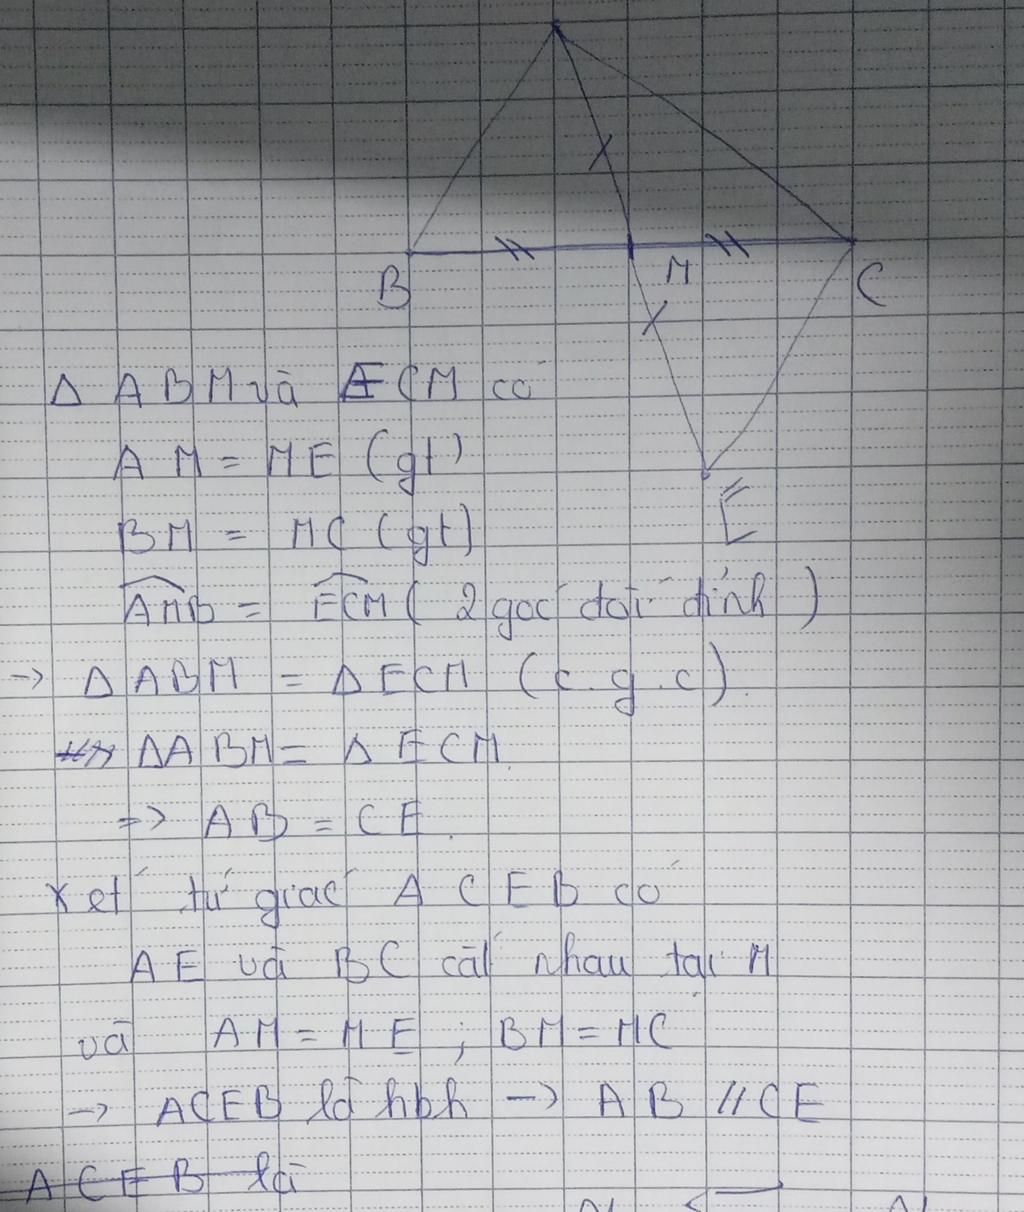 B
M
C
E
Δ ABM và ECM có
AM = ME (gt)
BM = MC (gt)
AMB = ECM ( 2 góc đối đỉnh )
-> Δ ABM = Δ ECM (c.g.c)
ΔABM = Δ ECM
=> AB = CE.
Xét tứ giác ACEB có
AE và BC cắt nhau tại M
và AM = ME ; BM = MC
-> ACEB là hbh -> AB // CE
ACEB là